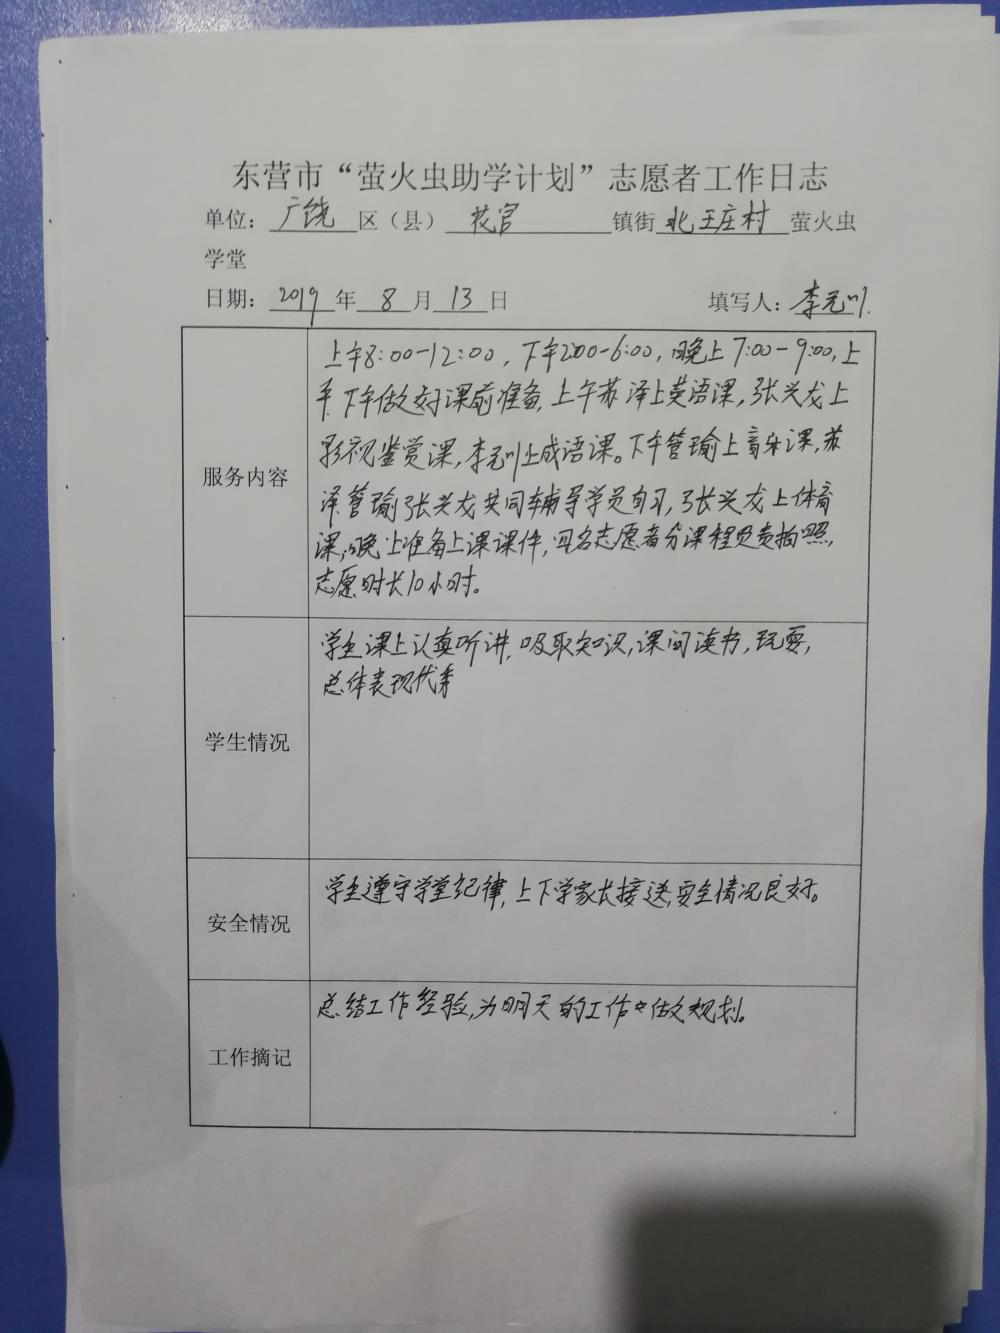 东营市“萤火虫助学计划”志愿者工作日志
单位：广饶区（县）花官镇街北王庄村萤火虫
学堂
日期：2019年8月13日 填写人：李元川
上午8:00-12:00，下午2:00-6:00，晚上7:00-9:00，上
午、下午做好课前准备，上午苏泽上英语课，张兴龙上
影视鉴赏课，李元川上成语课。下午管瑜上音乐课，苏
泽管瑜张兴龙共同辅导学员自习，张兴龙上体育
课，晚上准备上课课件，四名志愿者分课程负责拍照，
志愿时长10小时。
服务内容
学生课上认真听讲，吸取知识，课间读书，玩耍，
总体表现优秀
学生情况
学生遵守学堂纪律，上下学家长接送，安全情况良好。
安全情况
总结工作经验，为明天的工作做规划。
工作摘记